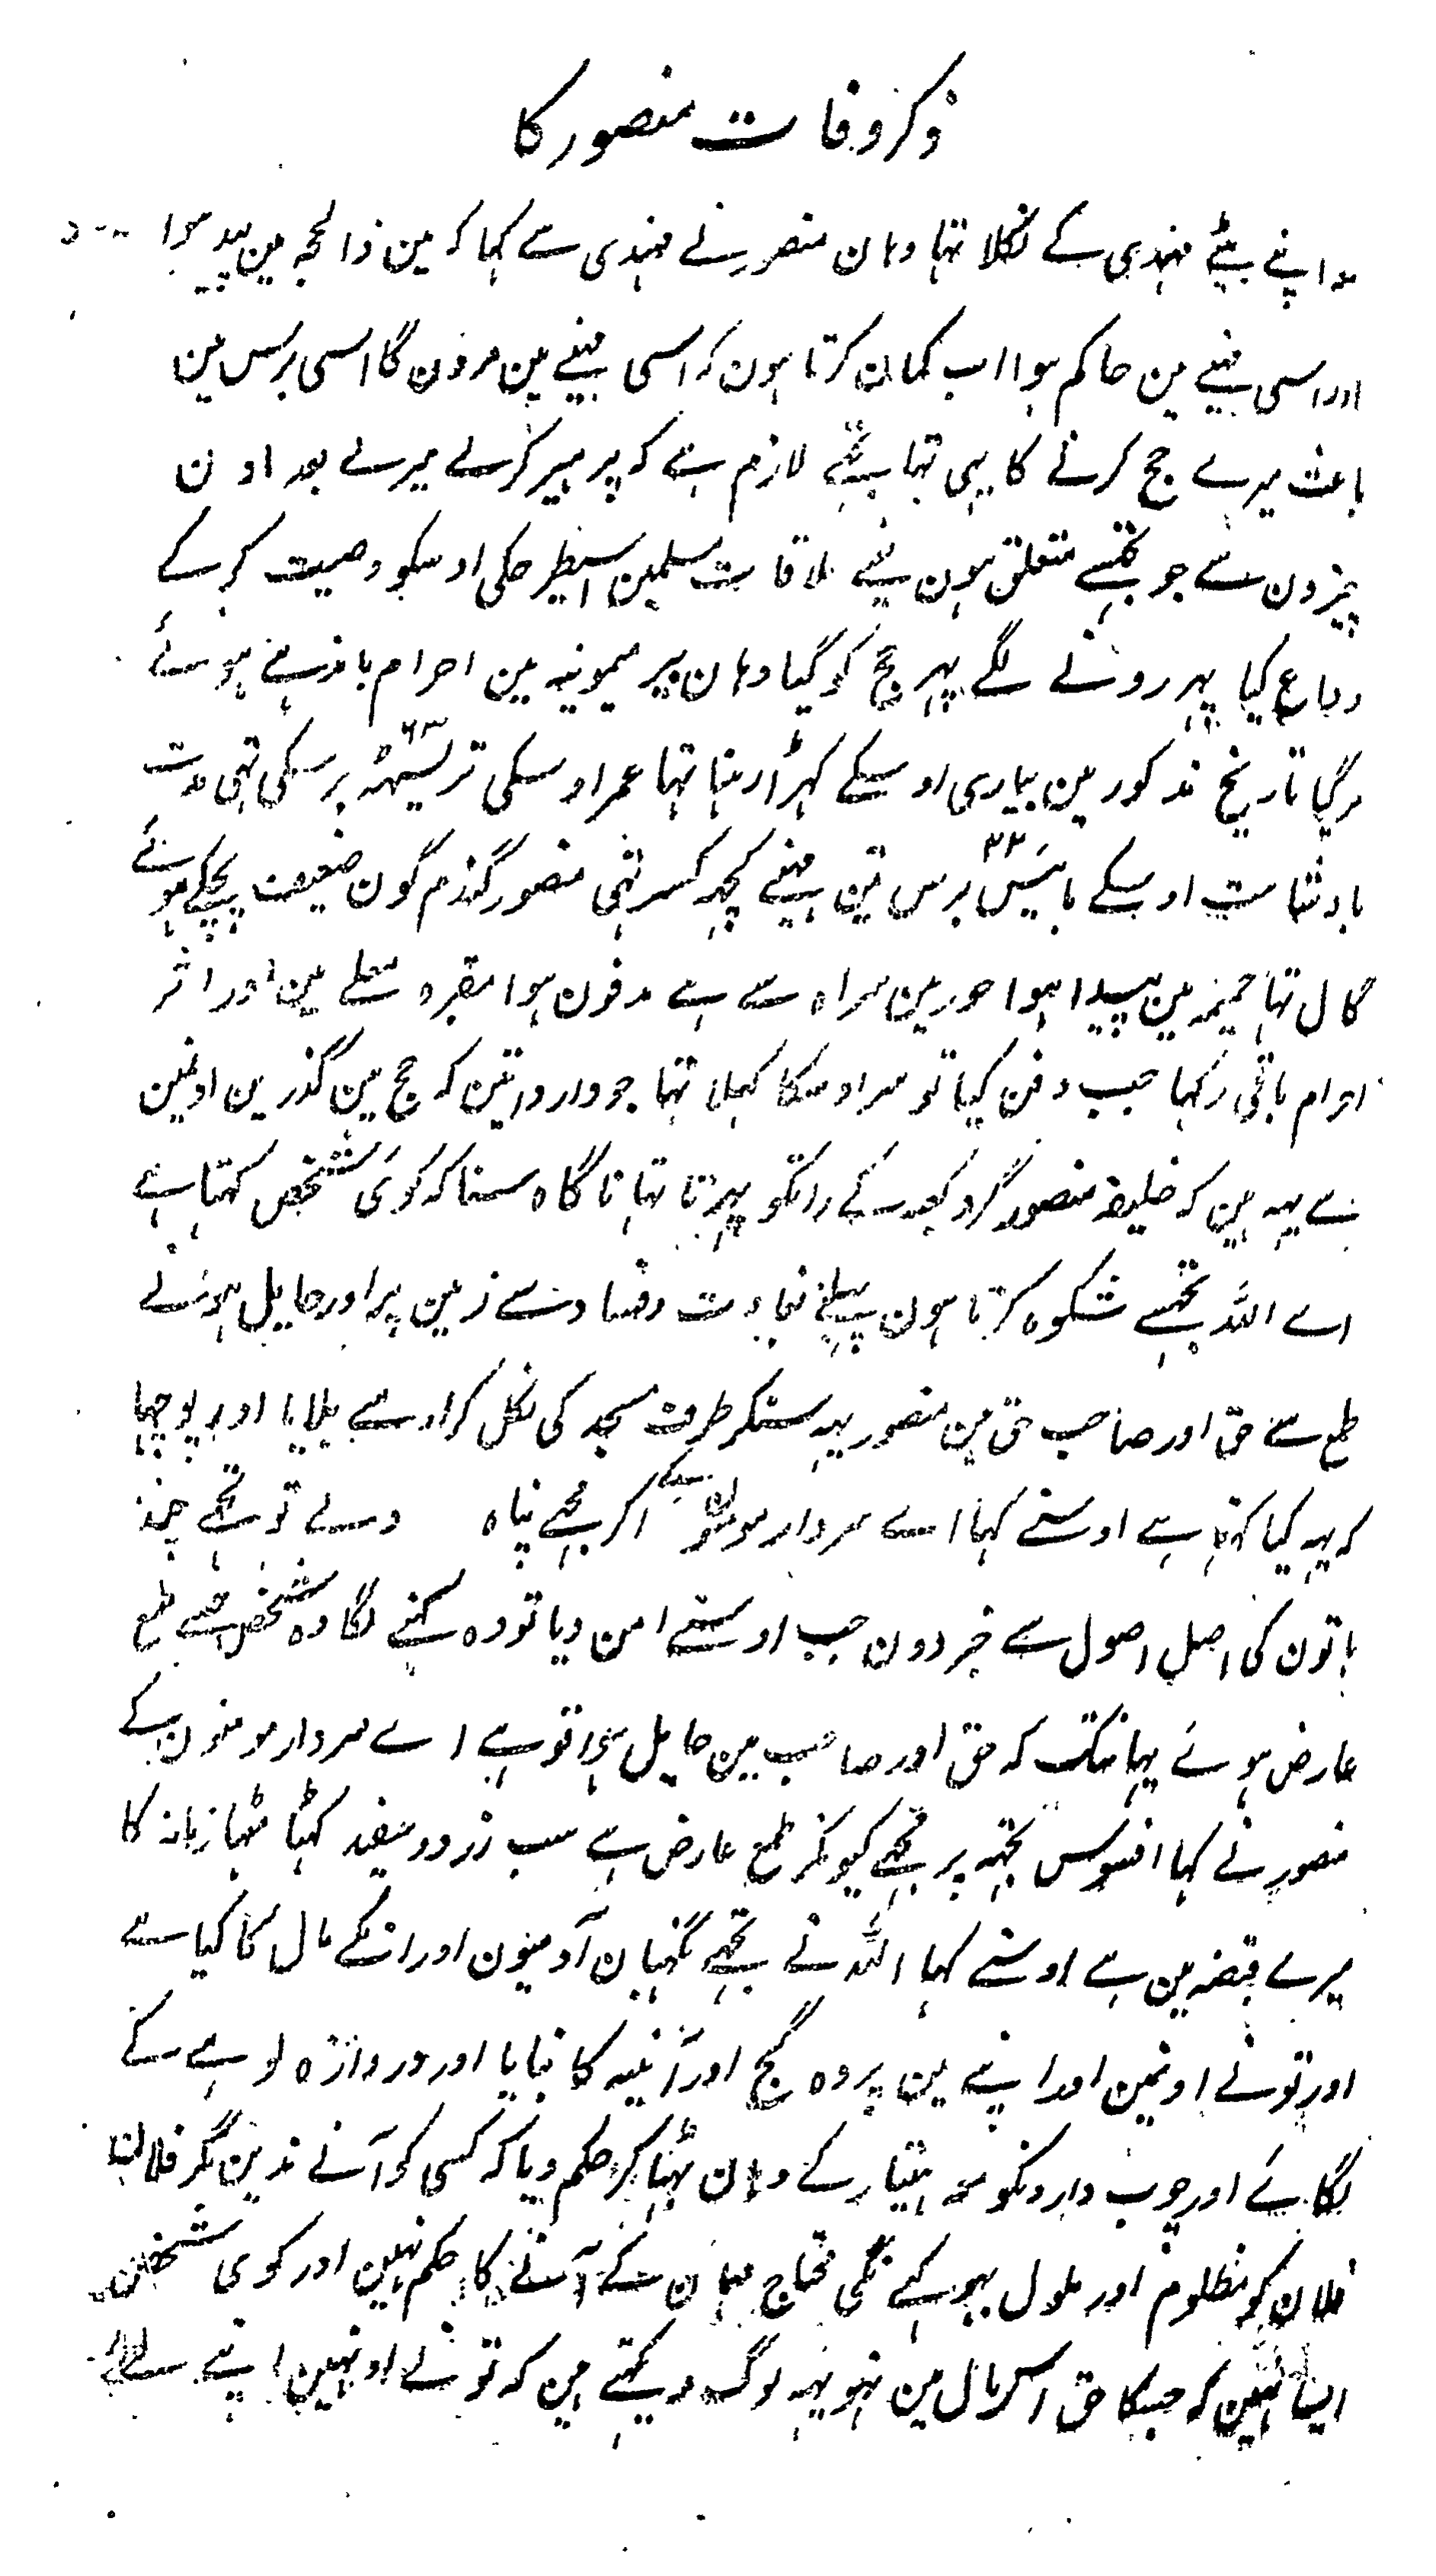 ذکر وفات منصور کا
اپنے بیٹے مہدی کے نکلا تہا وہان منصور نے مہدی سے کہا کہ مین ذالحجہ مین پید ہوا
اور اسی مہینے مین حاکم ہوا اب گمان کرتا ہون کہ اسی مہینے مین مرون گا اسی برس مین
باعث میرے حج کرنے کا یہی تہا تجہے لازم ہے کہ پرہیز کرے میرے بعد اون
چیزون سے جو تجہسے متعلق ہون یعنے ملاقات مسلمین اسیطرحکی اوسکو وصیت کر کے
وداع کیا پہر رونے لگے پہر حج کو گیا وہان بیر میمونیہ مین احرام باندہے ہوئے
مرگیا تاریخ مذکور مین بیاری اوسکے کہڑا رہنا تہا عمر اوسکی ترسیٹہہ ۶۳ برسکی تہی مدت
بادشاہت اوسکے بائیس ۲۲ برس تین مہینے کچہہ کسر تہی منصور گندم گون ضعیف پچکے ہوئے
گال تہا حمیمہ مین پیدا ہوا جو زمین سراہ سے ہے مدفون ہوا مقبرہ معلے مین اور اثر
احرام باقی رکہا جب دفن کیا تو سر اوسکا کہلا تہا جو وارداتین کہ حج مین گذرین اونمین
سے یہہ ہین کہ خلیفہ منصور گرد کعبہ کے راتکو پہرتا تہا ناگاہ سنا کہ کوئی شخص کہتا ہے
اے اللہ تجہسے شکوہ کرتا ہون پہیلنے بغاوت وفساد سے زمین پر اور حایل ہونے
طمع سے حق اور صاحب حق مین منصور یہہ سنکر طرف مسجد کی نکل کر اوسے بلایا اور پوچہا
کہ یہہ کیا کہتا ہے اوسنے کہا اے سردار مومنون کے اگر مجہے پناہ دے تو تجہے چند
باتون کی اصل اصول سے خبر دون جب اوسنے امن دیا تو وہ کہنے لگا وہ شخص جسے طمع
عارض ہوئے یہانتک کہ حق اور صاحب مین حایل ہوا تو ہے اے سردار مومنون کے
منصور نے کہا افسوس تجہہ پر مجہے کیونکر طمع عارض ہے سب زرد وسفید کہٹا مٹہا زمانہ کا
میرے قبضہ مین ہے اوسنے کہا اللہ نے تجہے نگہبان آدمیون اور انکے مال کا کیا ہے
اور تونے اونمین اور اپنے مین پردہ گچ اور آئینہ کا بنایا اور دروازہ لوہے کے
لگائے اور چوب دارونکو معہ ہتیار کے وہان بہٹا کر حکم دیا کہ کسی کو آنے ندین مگر فلان
فلان کو مظلوم اور ملول بہوکے ننگے محتاج یہان کے آنے کا حکم نہین اور کوی شخص
ایسا نہین کہ جسکا حق اس مال مین نہو یہہ لوگ دیکہتے ہین کہ تونے اونہین اپنے لئے